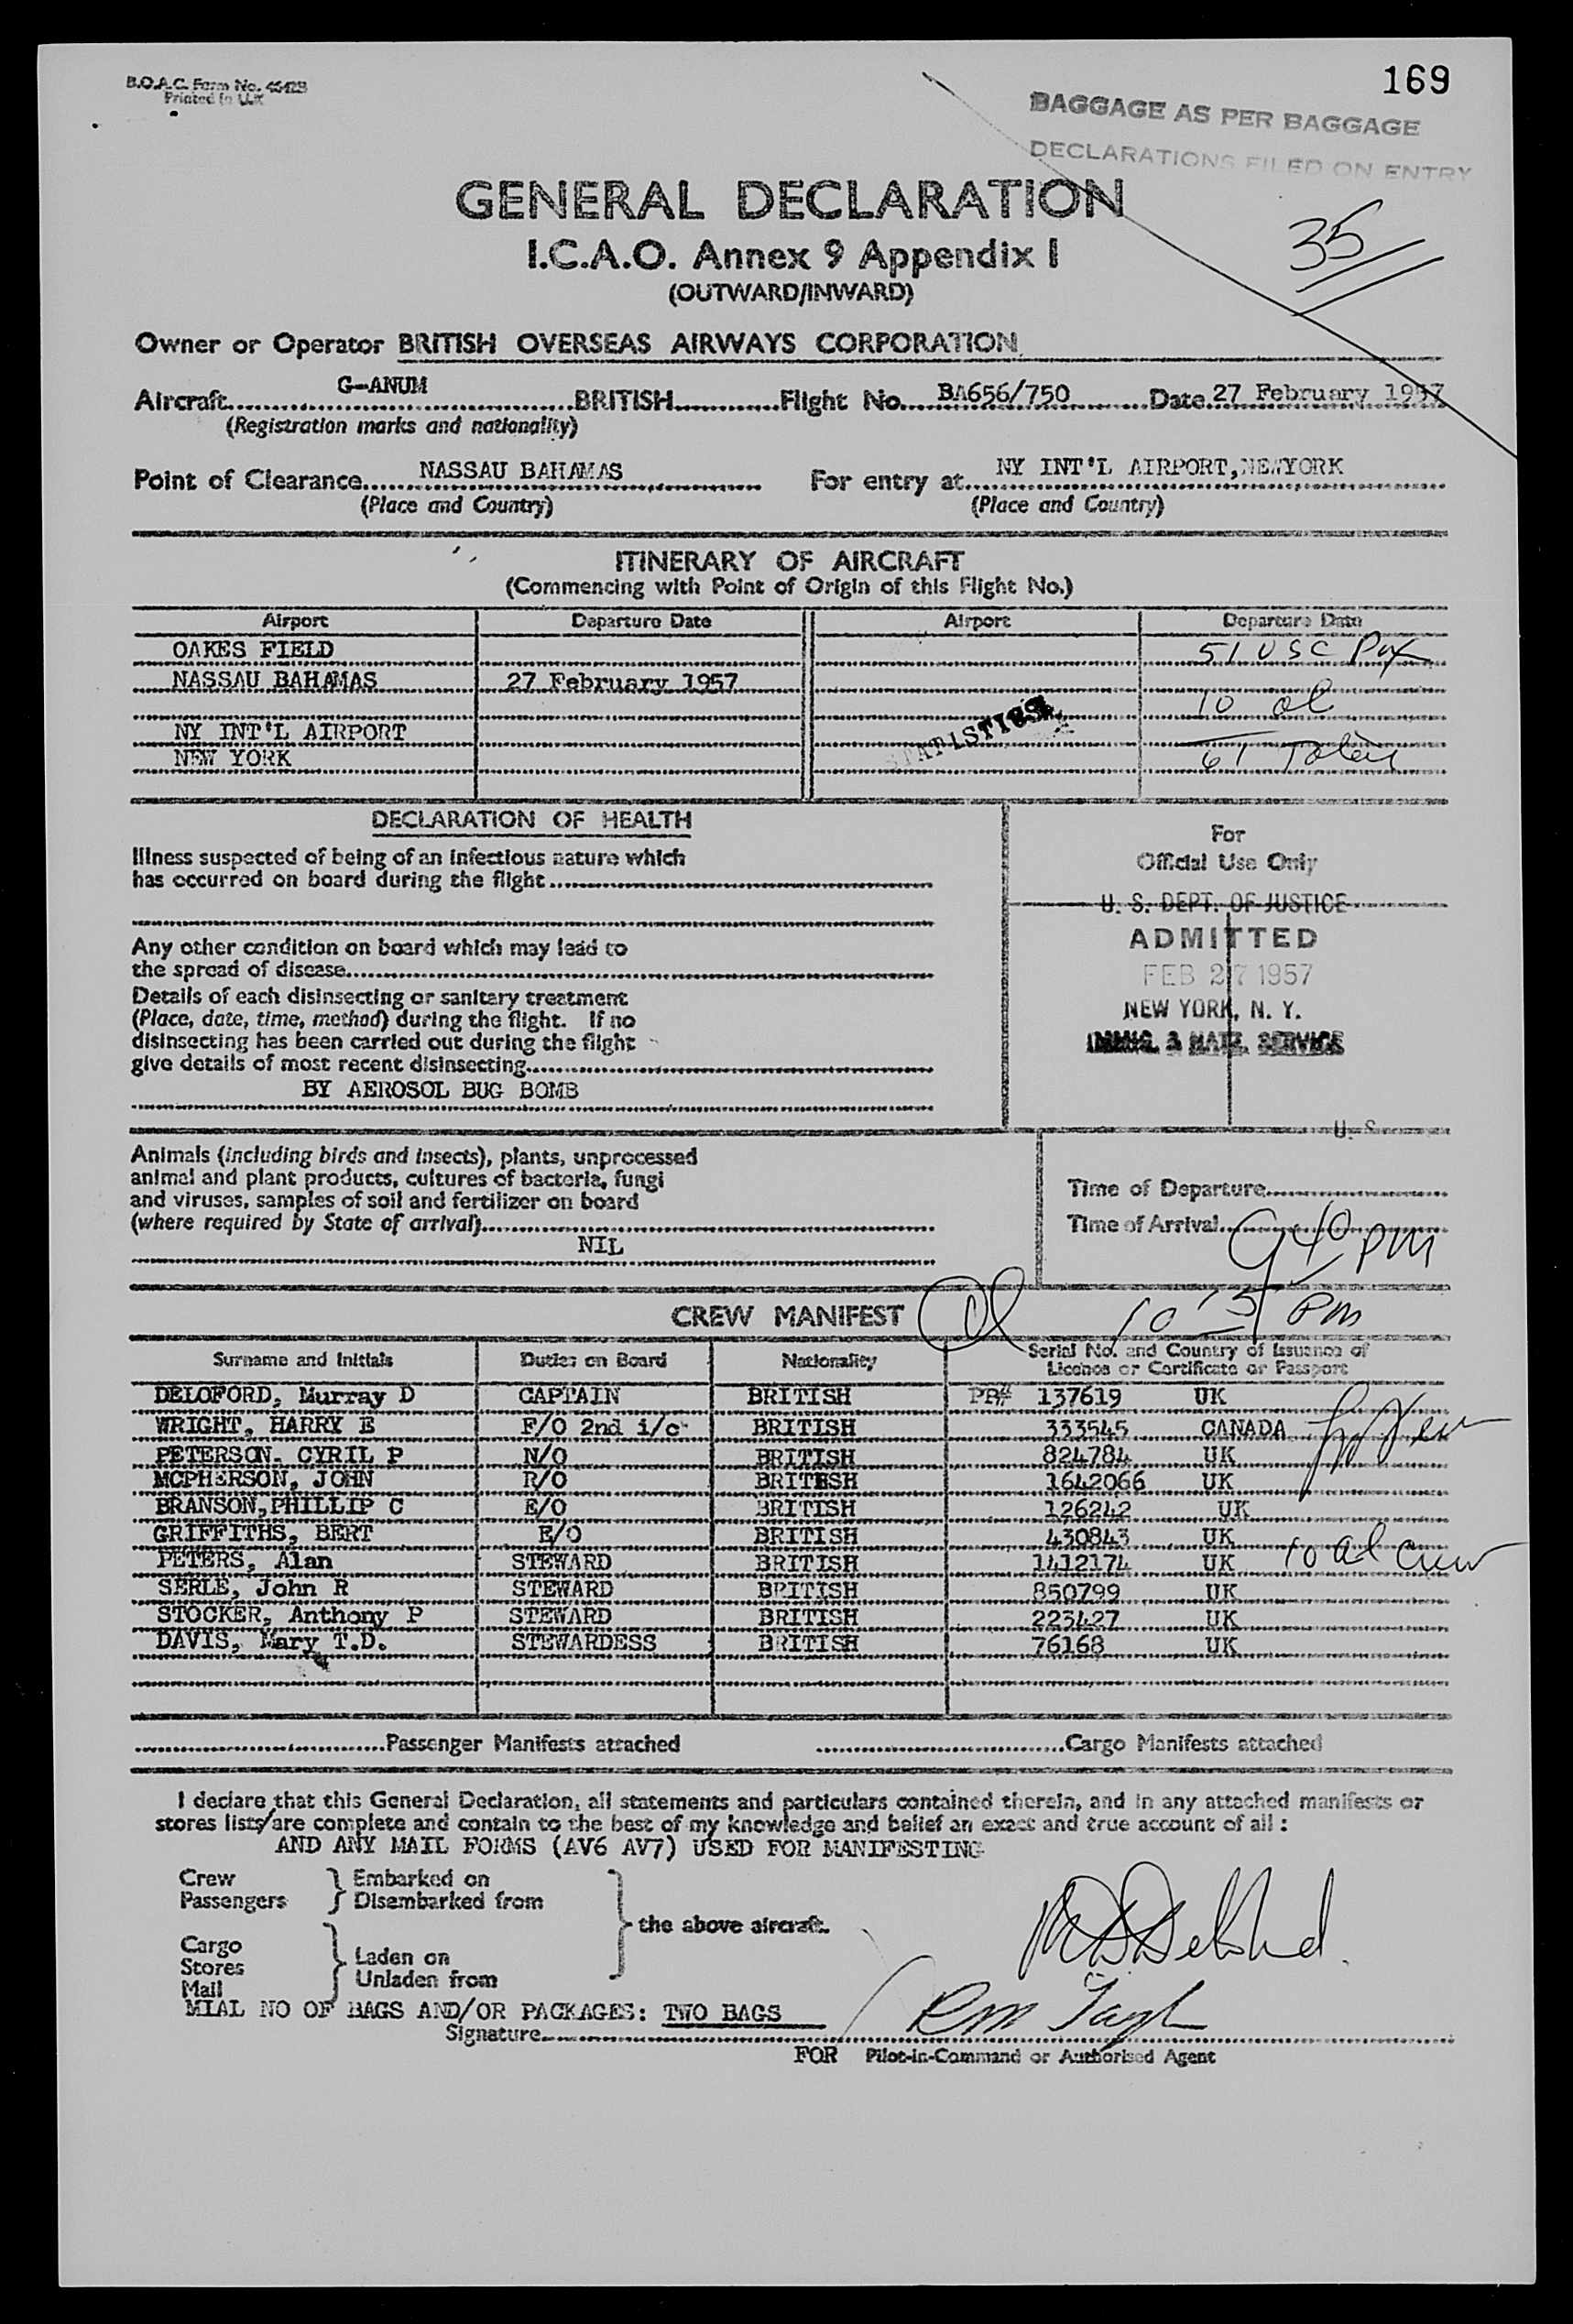 169
B.O.A.C. Form No.
Printed in U.K
BAGGAGE AS PER BAGGAGE
DECLARATIONS FILED ON ENTRY
GENERAL DECLARATION
35
I.C.A.O. Annex 9 Appendix I
(OUTWARD/INWARD)
Owner or Operator BRITISH OVERSEAS AIRWAYS CORPORATION
Aircraft G-ANUM BRITISH Flight No. BA656/750 Date 27 February 1957
(Registration marks and nationality)
Point of Clearance NASSAU BAHAMAS For entry at NY INT'L AIRPORT, NEWYORK
(Place and Country) (Place and Country)
ITINERARY OF AIRCRAFT
(Commencing with Point of Origin of this Flight No.)
Airport Departure Date Airport Departure Date
OAKES FIELD 51 USC Pax
NASSAU BAHAMAS 27 February 1957
10 al
NY INT'L AIRPORT STATISTICS
NEW YORK 61 Total
DECLARATION OF HEALTH
For
Official Use Only
Illness suspected of being of an infectious nature which
has occurred on board during the flight
U. S. DEPT. OF JUSTICE
ADMITTED
FEB 27 1957
NEW YORK, N. Y.
IMMIG. & NATZ. SERVICE
Any other condition on board which may lead to
the spread of disease
Details of each disinsecting or sanitary treatment
(Place, date, time, method) during the flight. If no
disinsecting has been carried out during the flight
give details of most recent disinsecting
BY AEROSOL BUG BOMB
U. S.
Animals (including birds and insects), plants, unprocessed
animal and plant products, cultures of bacteria, fungi
and viruses, samples of soil and fertilizer on board
(where required by State of arrival)
NIL
Time of Departure
Time of Arrival 940 pm
CREW MANIFEST 10 15 pm
Surname and Initials Duties on Board Nationality Serial No. and Country of Issuance of
Licence or Certificate or Passport
DELOFORD, Murray D CAPTAIN BRITISH PP# 137619 UK
WRIGHT, HARRY E F/O 2nd i/c BRITISH 333545 CANADA
PETERSON. CYRIL P N/O BRITISH 824784 UK
MCPHERSON, JOHN R/O BRITESH 1642066 UK
BRANSON, PHILLIP C E/O BRITISH 126242 UK
GRIFFITHS, BERT E/O BRITISH 430843 UK
PETERS, Alan STEWARD BRITISH 1412174 UK 10 al crew
SERLE, John R STEWARD BRITISH 850799 UK
STOCKER, Anthony P STEWARD BRITISH 223427 UK
DAVIS, Mary T.D. STEWARDESS BRITISH 76168 UK
Passenger Manifests attached Cargo Manifests attached
I declare that this General Declaration, all statements and particulars contained therein, and in any attached manifests or
stores lists/are complete and contain to the best of my knowledge and belief an exact and true account of all :
AND ANY MAIL FORMS (AV6 AV7) USED FOR MANIFESTING
Crew Embarked on
Passengers Disembarked from
the above aircraft.
Cargo
Stores Laden on
Mail Unladen from
MIAL NO OF BAGS AND/OR PACKAGES: TWO BAGS
Signature
FOR Pilot-in-Command or Authorised Agent